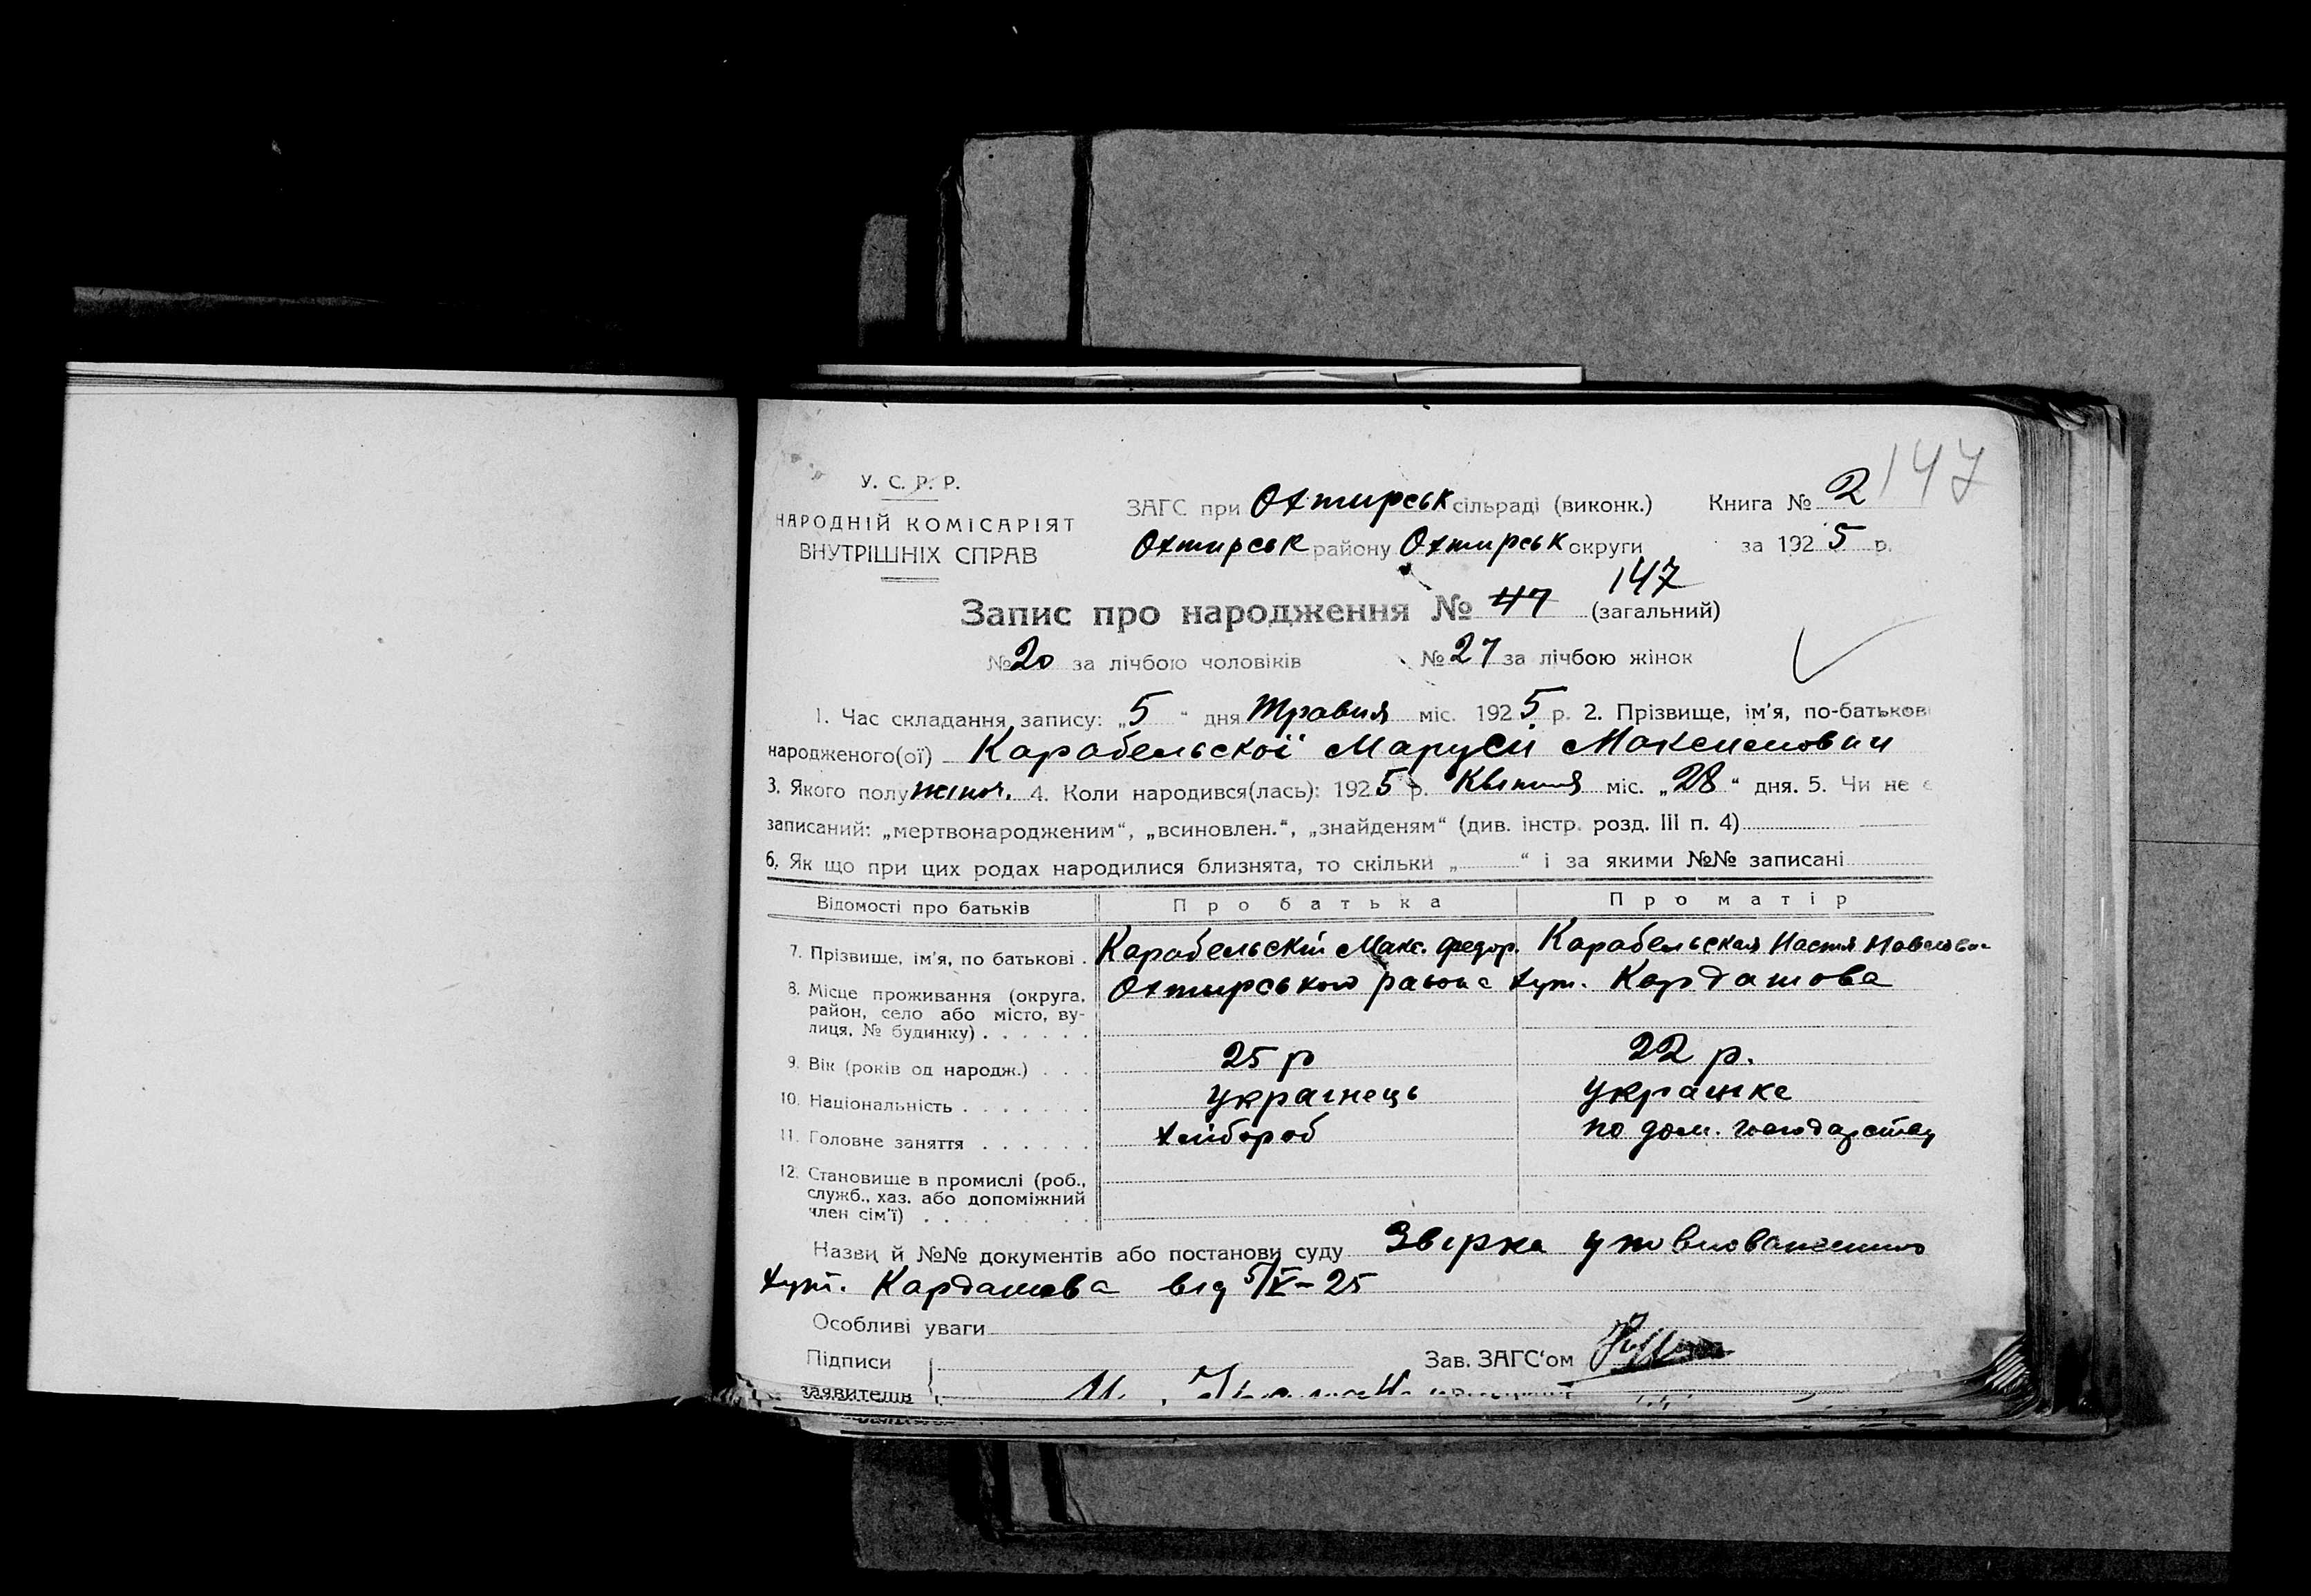 147
У. С. Р. Р.
НАРОДНІЙ КОМІСАРІЯТ
ВНУТРІШНІХ СПРАВ
ЗАГС при Охтирськ сільраді (виконк.) Книга № 2
Охтирськ району Охтирськ округи за 1925 р.
147
Запис про народження № 47 (загальний)
№ 20 за лічбою чоловіків № 27 за лічбою жінок
1. Час складання запису: „5“ дня Травня міс. 1925 р. 2. Прізвище, ім'я, по-батькові
народженого(ої) Карабельскої Марусі Максимович
3. Якого полу жіноч. 4. Коли народився(лась): 1925 р. Квітня міс. „28“ дня. 5. Чи не є
записаний: „мертвонародженим“, „всиновлен.“, „знайденям“ (див. інстр. розд. III п. 4)
6. Як що при цих родах народилися близнята, то скільки „ “ і за якими №№ записані
Відомості про батьків Про батька Про матір
7. Прізвище, ім'я, по батькові . Карабельскій Макс. Федор. Карабельская Настя
8. Місце проживання (округа, район, село або місто, вулиця, № будинку) . . . . . . Охтирського району хут. Кардашова
9. Вік (років од народж.) . . . 25 р 22 р.
10. Національність . . . . . . . українець українка
11. Головне заняття . . . . . . хлібороб по дом. господарству
12. Становище в промислі (роб., служб., хаз. або допоміжний член сім'ї) . . . . . .
Назви й №№ документів або постанови суду Звірка уповноваженого
хут. Кардашева від 5/V-25
Особливі уваги
Підписи
Зав. ЗАГС'ом
заявителів